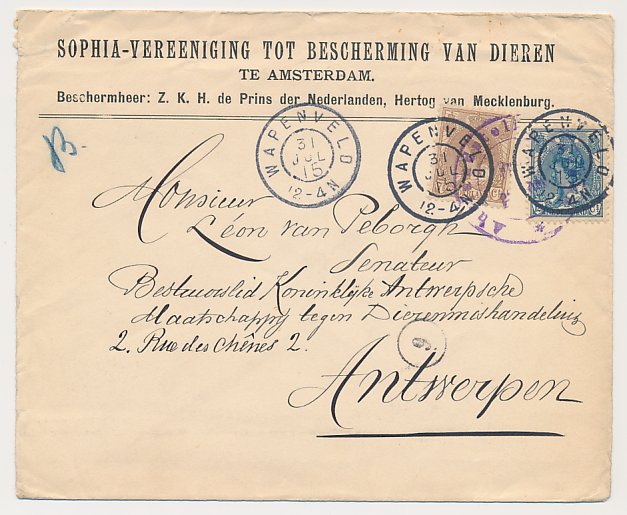 SOPHIA-VEREENIGING TOT BESCHERMING VAN DIEREN
TE AMSTERDAM.
Beschermheer: Z. K. H. de Prins der Nederlanden, Hertog van Mecklenburg.
B.
WAPENVELD
31
JUL
15
12-4N
WAPENVELD
31
JUL
15
12-4N
WAPENVELD
12-4N
Monsieur
Léon van Peborgh
Senateur
Bestuurslid Koninklijke Antwerpsche
Maatschappij tegen Dierenmishandeling
2. Rue des Chênes 2.
6
Antwerpen